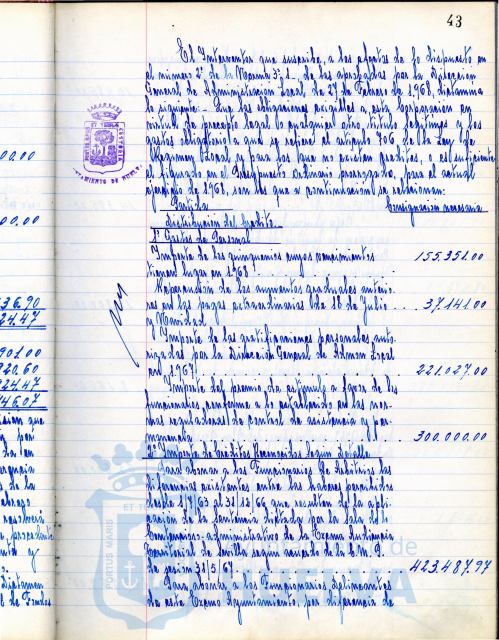 43
El Interventor que suscribe, a los efectos de lo dispuesto en
el número 2º de la Norma 3ª, de las aprobadas por la Dirección
General de Administración Local de 27 de Febrero de 1968, dictamina
lo siguiente: Que las obligaciones exigibles a esta Corporación en
virtud de precepto legal o cualquier otro título legítimo y los
gastos obligatorios a que se refiere el artículo 706 de la Ley de
Régimen Local y para los que no existen créditos, o es insuficiente
el figurado en el Presupuesto Ordinario prorrogado, para el actual
ejercicio de 1968, son los que a continuación se relacionan:
Partida Consignación necesaria
Distribución del Crédito
1º Gastos de Personal
Importe de los quinquenios cuyos vencimientos
tienen lugar en 1968 155.351.00
Repercusión de los aumentos graduales anterio-
res en las pagas extraordinarias de 18 de Julio 37.141.00
y Navidad
Importe de las gratificaciones personales auto-
rizadas por la Dirección General de Admon Local
en 1967 221.027.00
Importe del premio de estímulo a favor de los
funcionarios, conforme a lo establecido en las nor-
mas reguladoras de control de asistencia y per-
manencia 300.000.00
2º Importe de Créditos Reconocidos según detalle
Para abonar a los Funcionarios de Arbitrios las
diferencias existentes entre los haberes percibidos
desde 1/7/63 al 31/12/66 que resultan de la apli-
cación de la sentencia dictada por la Sala de lo
Contencioso-Administrativo de la Excma Audiencia
Territorial de Sevilla según acuerdo de la C.M.P.
de sesión 31/5/67 423.487.97
Para abonar a los Funcionarios Delineantes
de este Excmo Ayuntamiento, por diferencia de
00.00
00.00
36.90
24.47
901.00
920.60
224.47
46.07
HUELVA
PORTUS MARIS